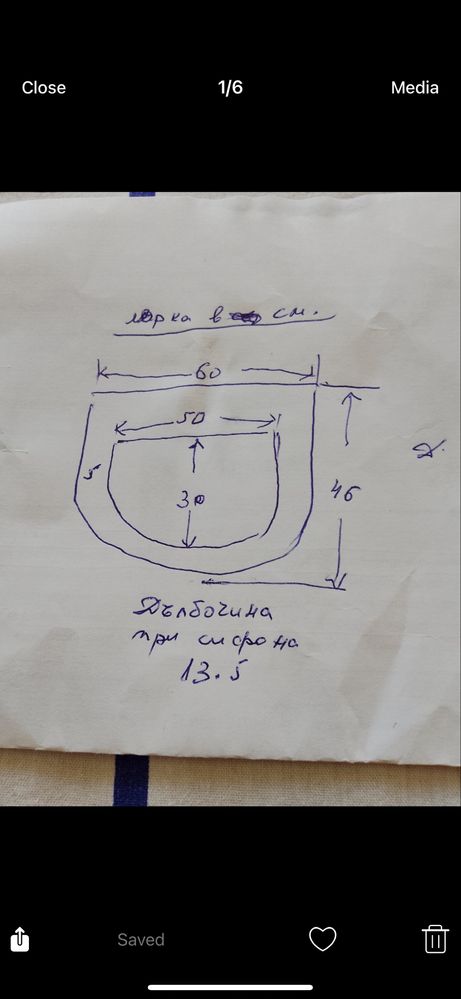 Close
1/6
Media
мярка в см.
60
50
5
30
46
Дълбочина
при сифона
13.5
Saved